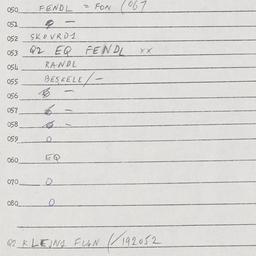 050 FENDL = FON (067
051 ϕ —
052 SKOVRD1
053 Q2 EQ FENDL xx
054 RANDL
055 BESKELE/—
056 —
057 —
058 —
059 0
060 EQ
070 0
080 0
Q2 KLEIN1 FLAN (/192052